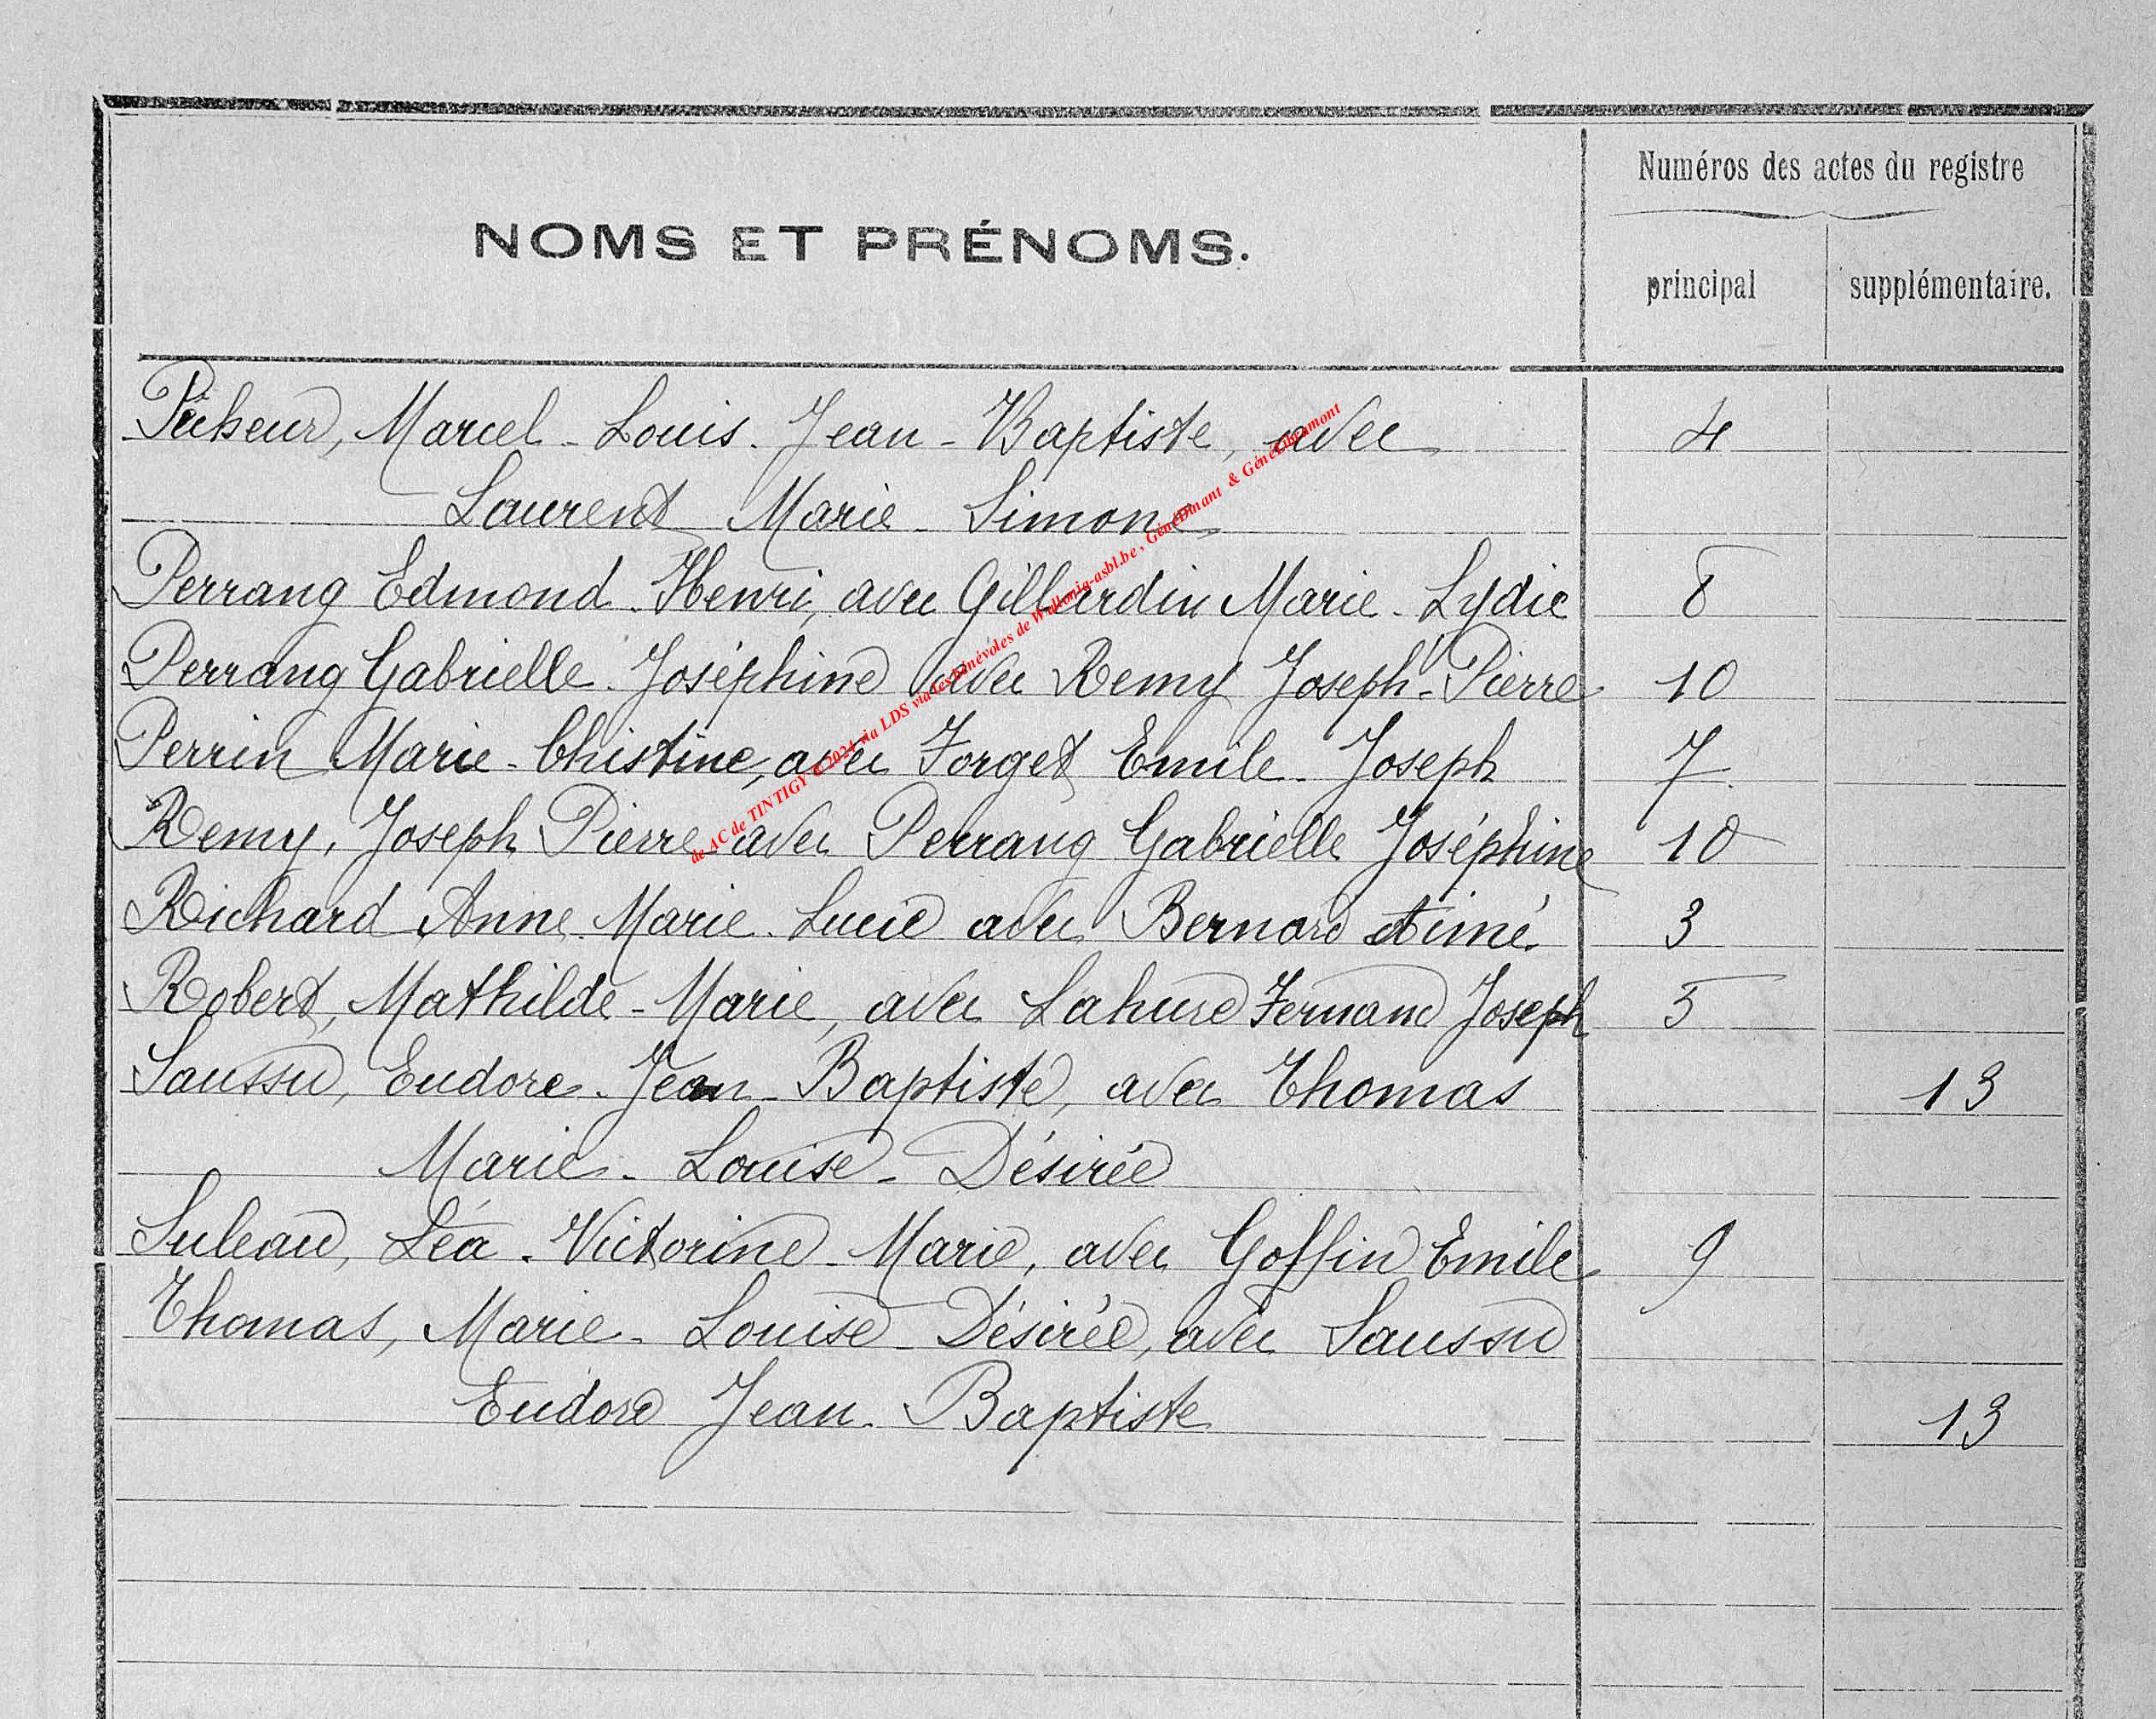 Numéros des actes du registre
NOMS ET PRÉNOMS.
principal supplémentaire.
Pêcheur, Marcel - Louis - Jean - Baptiste, avec 4
Laurent Marie - Simone
Perrang Edmond - Henri, avec Gillardin Marie - Lydie 8
Perrang Gabrielle - Joséphine avec Remy Joseph - Pierre 10
Perrin Marie - Chistine, avec Forget Emile - Joseph 7
Remy, Joseph Pierre avec Perrang Gabrielle Joséphine 10
Richard Anne - Marie - Lucie avec Bernard Aimé. 3
Robert, Mathilde - Marie, avec Lahure Fernand Joseph 5
Saussu, Eudore - Jean - Baptiste, avec Thomas 13
Marie - Louise - Désirée
Suleau, Léa - Victorine - Marie, avec Goffin Emile 9
Thomas, Marie - Louise - Désirée, avec Saussu
Eudore Jean - Baptiste 13
de AC de TINTIGY © 2024 via LDS via les bénévoles de Wallonia-asbl.be, GénéDinant & GénéLibramont